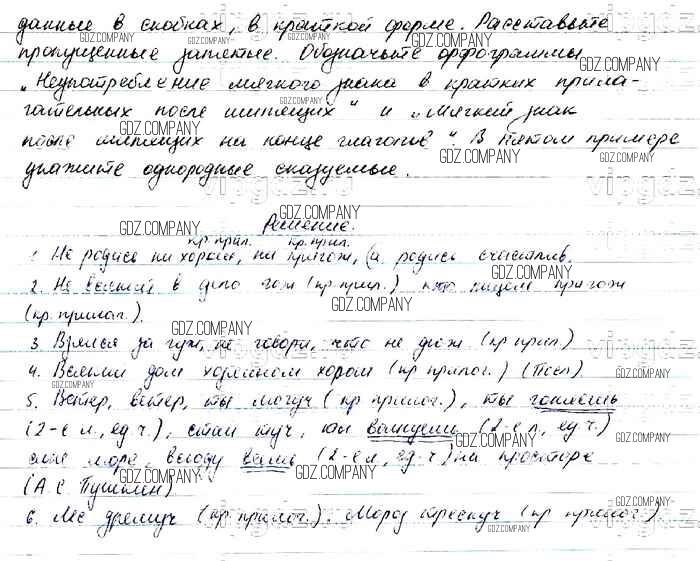 данные в скобках, в краткой форме. Расставьте
пропущенные запятые. Обозначьте орфограммы
„Неупотребление мягкого знака в кратких прила-
гательных после шипящих“ и „Мягкий знак
после шипящих на конце глаголов“. В пятом примере
укажите однородные сказуемые.
Решение.
кр. прил. кр. прил.
1. Не родись ни хорош, ни пригож, а родись счастлив.
2. Не всякий в дело гож (кр. прил.) кто лицом пригож
(кр. прилаг.).
3. Взялся за гуж, не говори, что не дюж (кр. прил.)
4. Всякий дом хозяином хорош (кр. прилаг.) (Посл.)
5. Ветер, ветер, ты могуч (кр. прилаг.), ты гоняешь
(2-е л., ед. ч.), стаи туч, ты волнуешь (2-е л., ед. ч.)
сине море, всюду веешь (2-е л., ед. ч.) на просторе
(А. С. Пушкин)
6. Лес дремуч (кр. прилаг.). Мороз трескуч (кр. прилаг.)